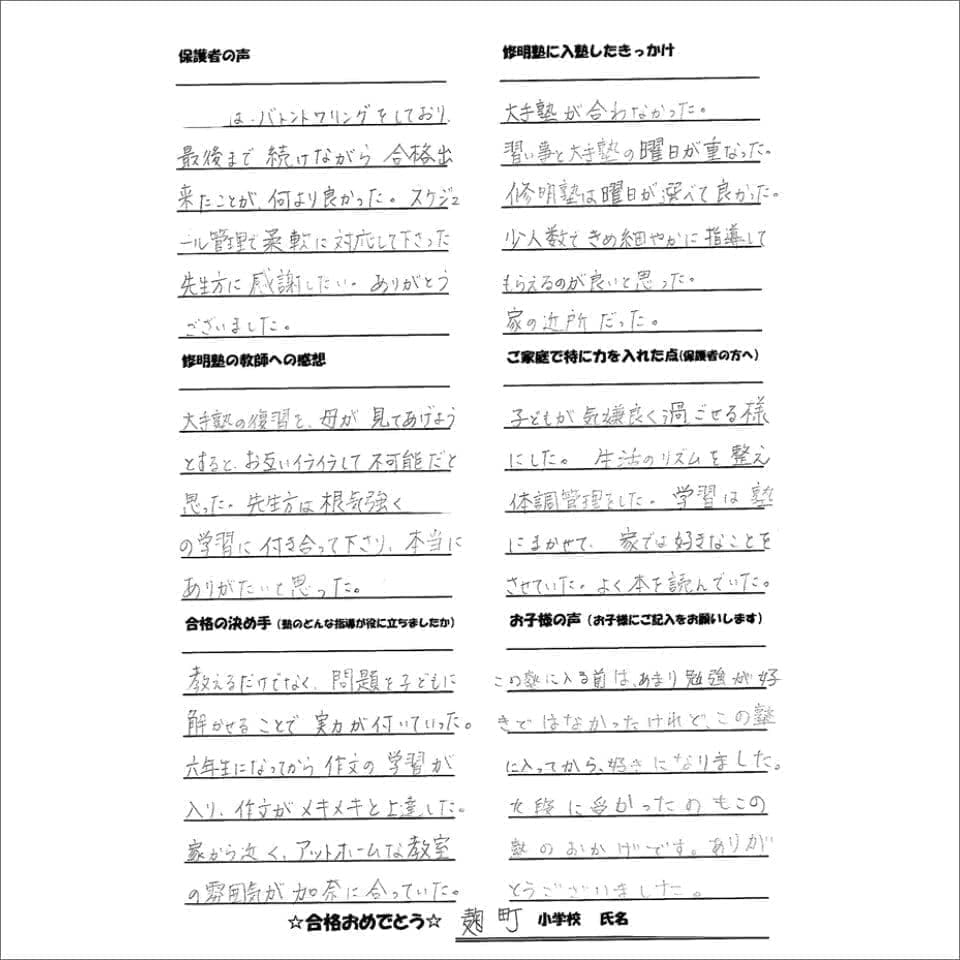 保護者の声
は、バトントワリングをしており、
最後まで続けながら合格出
来たことが、何より良かった。スケジュ
ール管理で柔軟に対応して下さった
先生方に感謝したい。ありがとう
ございました。
修明塾の教師への感想
大手塾の復習を、母が見てあげよう
とすると、お互いイライラして不可能だと
思った。先生方は根気強く
の学習に付き合って下さり、本当に
ありがたいと思った。
合格の決め手（塾のどんな指導が役に立ちましたか）
教えるだけでなく、問題を子どもに
解かせることで実力が付いていった。
六年生になってから作文の学習が
入り、作文がメキメキと上達した。
家から近く、アットホームな教室
の雰囲気が加奈に合っていた。
修明塾に入塾したきっかけ
大手塾が合わなかった。
習い事と大手塾の曜日が重なった。
修明塾は曜日が選べて良かった。
少人数できめ細やかに指導して
もらえるのが良いと思った。
家の近所だった。
ご家庭で特に力を入れた点(保護者の方へ)
子どもが気嫌良く過ごせる様
にした。生活のリズムを整え
体調管理をした。学習は塾
にまかせて、家では好きなことを
させていた。よく本を読んでいた。
お子様の声（お子様にご記入をお願いします）
この塾に入る前は、あまり勉強が好
きではなかったけれど、この塾
に入ってから、好きになりました。
九段に受かったのもこの
塾のおかげです。ありが
とうございました。
☆合格おめでとう☆ 麹町 小学校 氏名